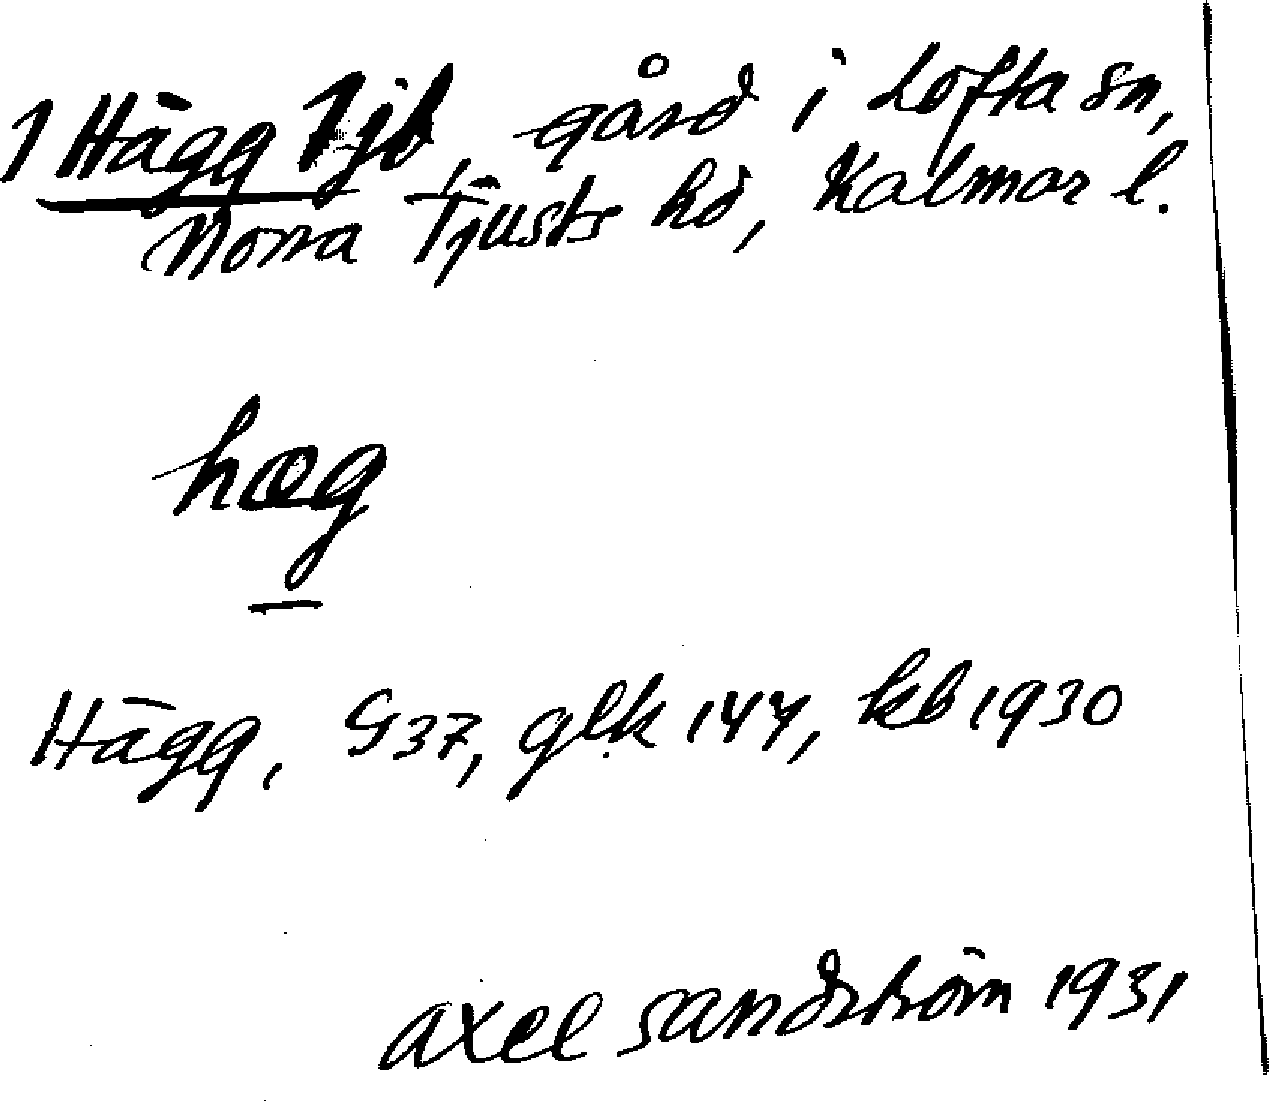 1 Hägg 1jb, gård i Lofta sn,
Norra Tjusts hd, Kalmar l.
hæg
Hägg, G37, glk 144, kb 1930
Axel Sandström 1931